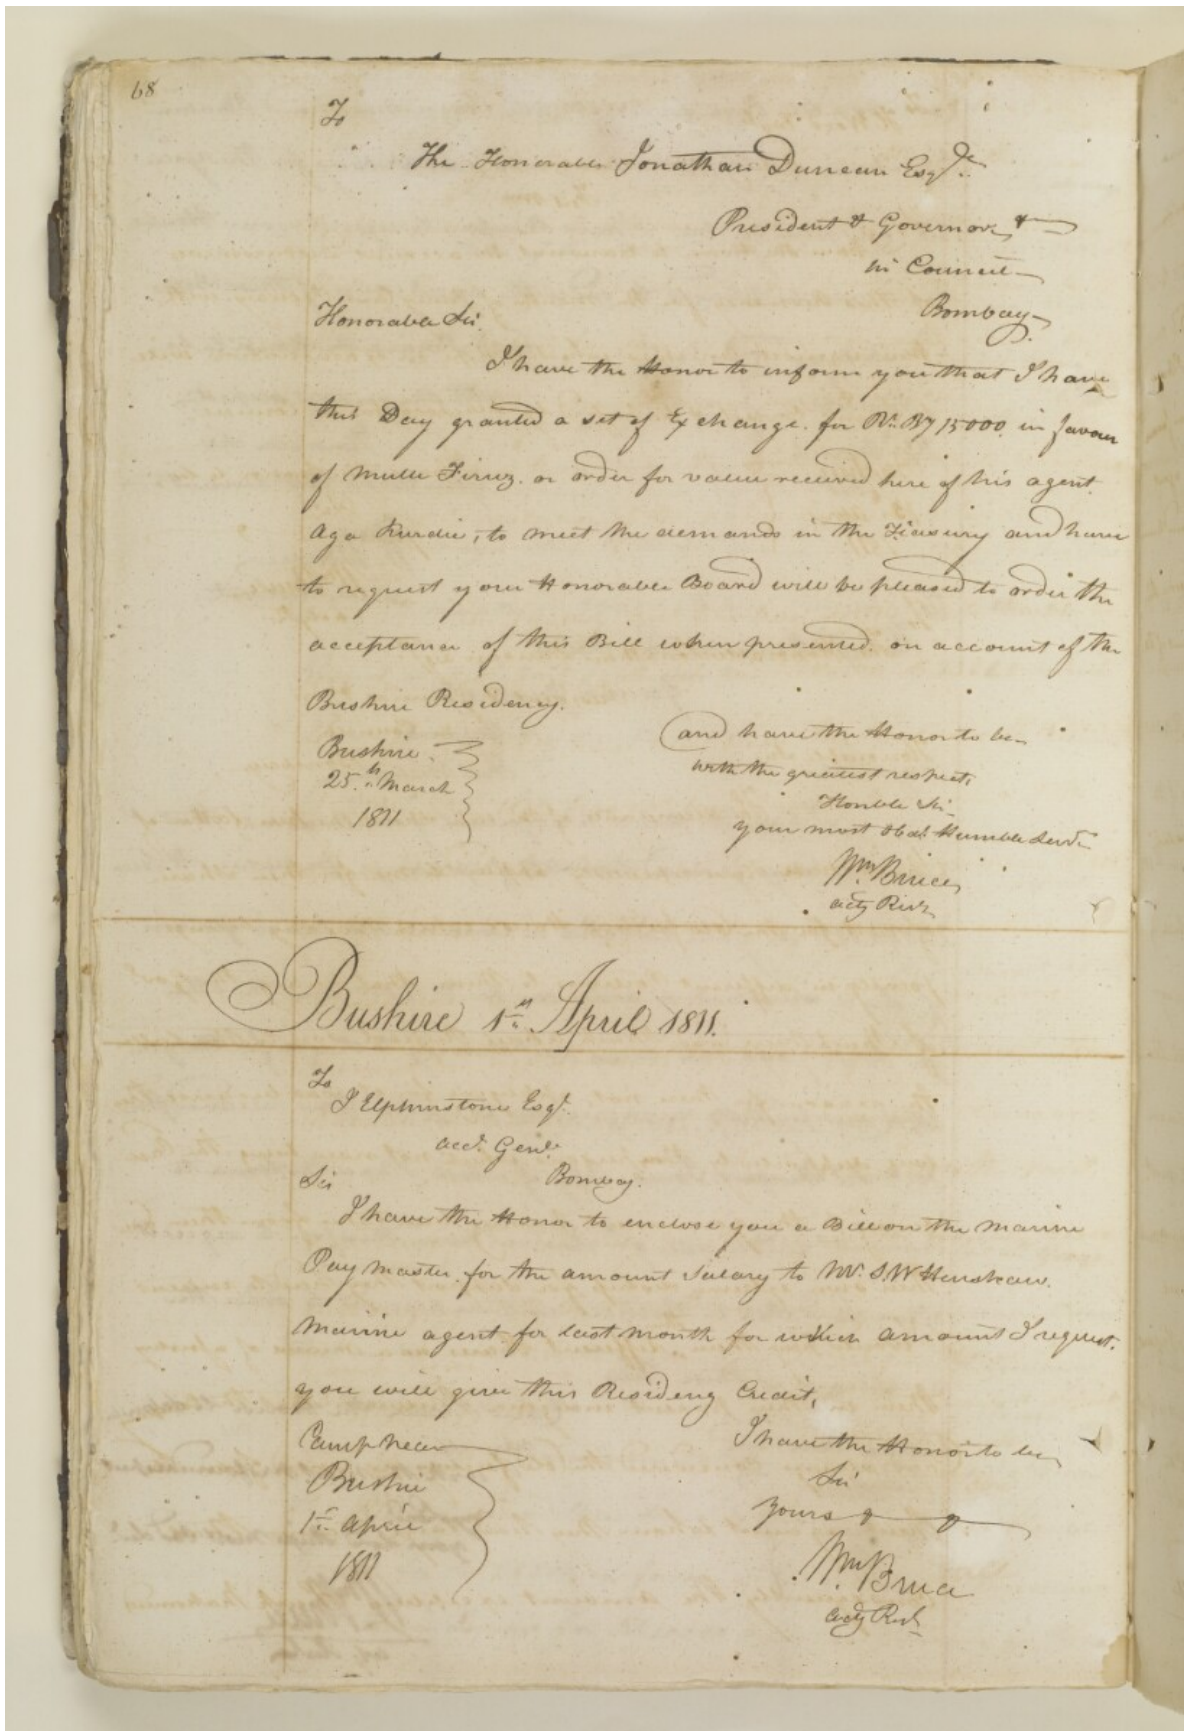 68
To
The Honorable Jonathan Duncan Esqre.
President & Governor &
in Council
Bombay
Honorable Sir.
I have the Honor to inform you that I have
this Day granted a set of Exchange. for Rs. By 15000. in favour
of Mulla Firuz. or order for value received here of his agent.
Aga , to meet the demands in the Treasury and have
to request your Honorable Board will be pleased to order the
acceptance of this Bill when presented. on account of the
Bushire Residency.
and have the Honor to be
with the greatest respect,
Honble Sir
your most Obdt. Humble Servt.
Bushire
25th. March
1811
Wm. Bruce,
actg Resdt
Bushire 1st. April 1811.
To
J Elphinstone Esqr.
acct. Genl.
Bombay.
Sir
I have the Honor to enclose you a Bill on the Marine
Pay Master. for the amount Salary to Mr. S W Henshaw.
Marine agent for last month for which amount I request.
you will give this Residency Credit,
I have the Honor to be,
Sir
Yours & &
Camp near
Bushire
1st. April
1811
Wm. Bruce
actg Resdt